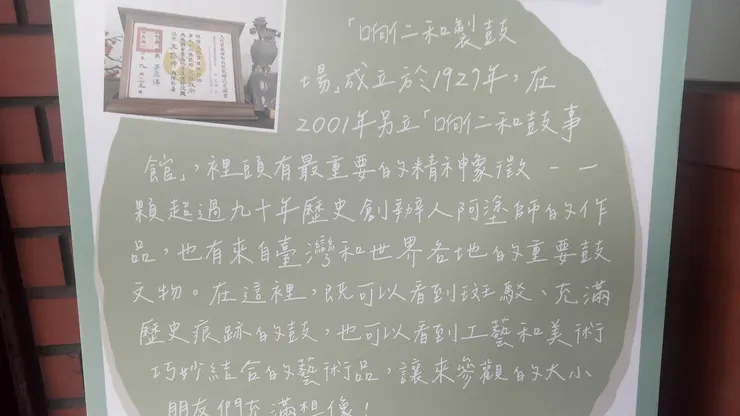 「响仁和製鼓
場」成立於1927年，在
2001年另立「响仁和鼓事
館」，裡頭有最重要的精神象徵——
顆超過九十年歷史創辦人阿塗師的作
品，也有來自臺灣和世界各地的重要鼓
文物。在這裡，既可以看到斑駁、充滿
歷史痕跡的鼓，也可以看到工藝和美術
巧妙結合的藝術品，讓來參觀的大小
朋友們充滿想像！